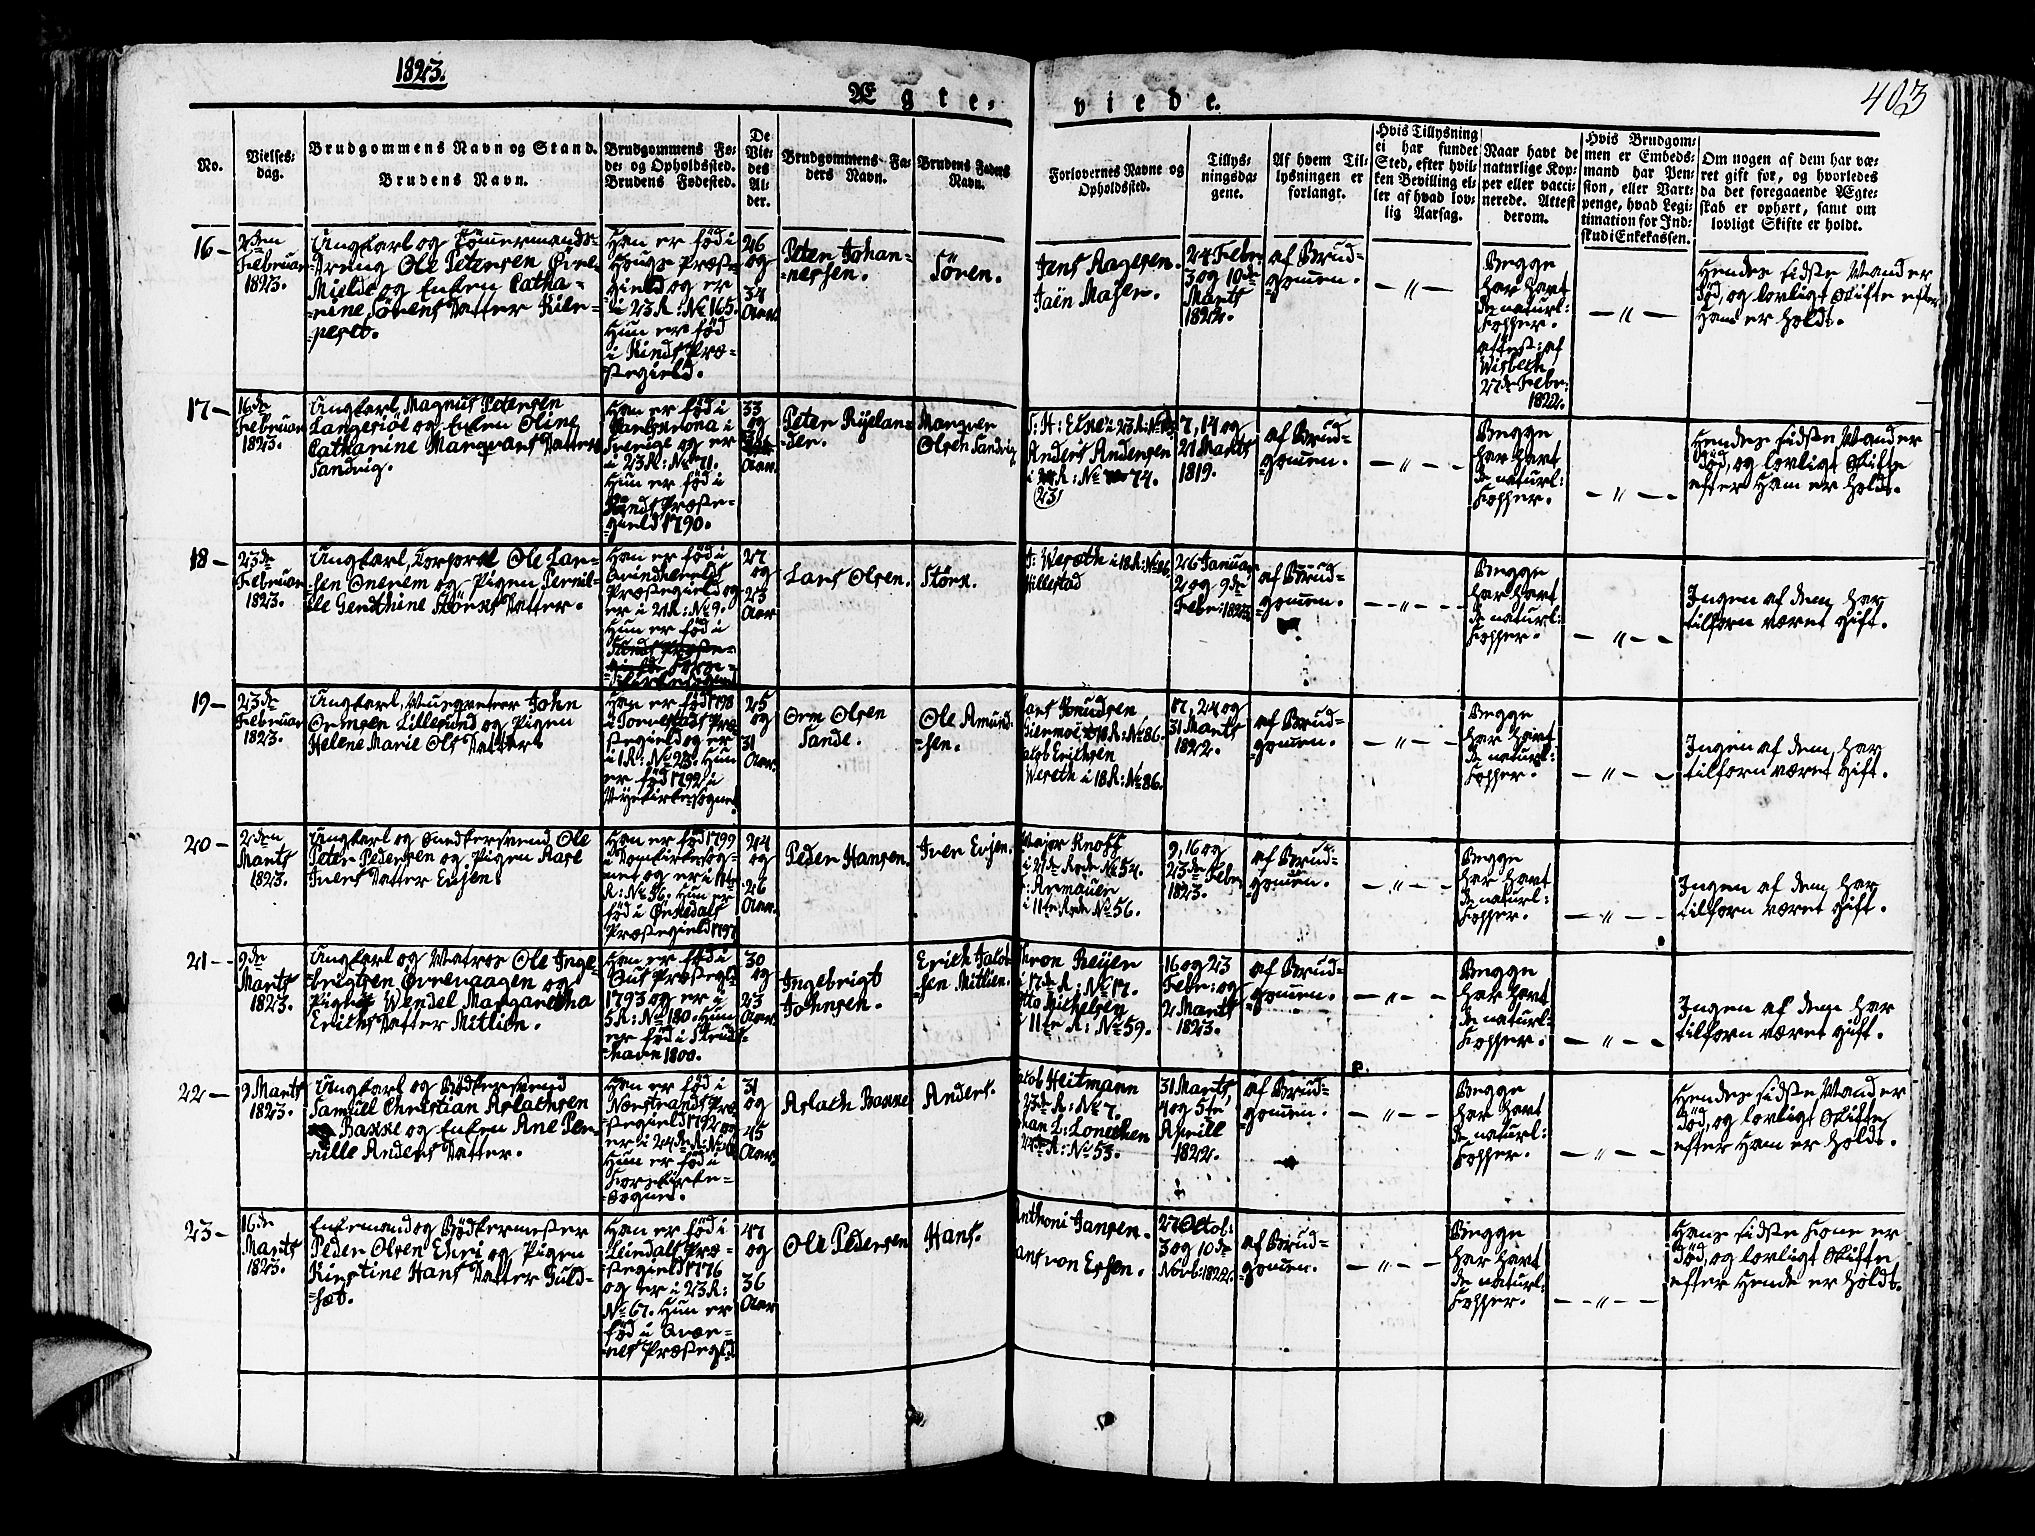 1823.
403
Ægte-
viede.
No.
Vielses-
dag.
Brudgommens Navn og Stand.
Brudens Navn.
Brudgommens Fø-
de- og Opholdssted.
Brudens Fødested.
De
Vie-
des
Al-
der.
Brudgommens Fa-
ders Navn.
Brudens Faders
Navn.
Forlovernes Navne og
Opholdssted.
Tillys-
ningsda-
gene.
Af hvem Til-
lysningen er
forlangt.
Hvis Tillysning
ei har fundet
Sted, efter hvil-
ken Bevilling el-
ler af hvad lov-
lig Aarsag.
Naar havt de
naturlige Kop-
per eller vacci-
nerede. Attest
derom.
Hvis Brudgom-
men er Embeds-
mand har Pen-
sion, eller Vart-
penge, hvad Legi-
timation for Ind-
skud i Enkekassen.
Om nogen af dem har væ-
ret gift før, og hvorledes
da det foregaaende Ægte-
skab er ophørt, samt om
lovligt Skifte er holdt.
16-
2den
Februar
1823.
Ungkarl og Tømmermands-
Dreng Ole Petersen Øvre-
Mielde og Enken Catha-
-rine Sørens Datter Kile-
-peset.
Han er fød i
Hougs Præste-
gield og er
i 23 R: No 165.
Hun er fød
i Kinds Præ-
stegield.
26
og
34
Aar.
Peter Johan-
-nessen.
Søren.
Jens Aagesen.
24 Febr.
3 og 10de
Marts
1822.
af Brud-
gommen.
- " -
Begge
har havt
de naturl:
Kopper.
attest: af
Wisbech
27de Febr:
1822.
- " -
Hendes sidste Mand er
død, og lovligt Skifte efter
Ham er holdt.
17-
16de
Februar
1823.
Ungkarl Magnus Petersen
Langesiöe og Enken Oline
Catharine Marqvars Datter
Sandvig.
Han er fød i
Carlscrona i
Sverige og er
i 23 R: No 71.
Hun er fød i
Kinds Præste-
gield 1790.
33
og
Aar.
Peter Ryelan-
der.
Olsen Sandvig
Anders Andersen
i R: No 74.
(23)
7, 14 og
21 Marts
1819.
af Brud-
gommen.
- " -
Begge
har havt
de naturl:
Kopper.
- " -
Hendes sidste Mand er
død, og lovligt Skifte
efter Ham er holdt.
18-
23de
Februar
1823.
Ungkarl, Corporal Ole Lar-
-sen Onerem og Pigen Pernil-
-le Gerdthine Størks Datter.
Han er fød i
Qvindherreds
Præstegield og
er i 21 R: No 9.
Hun er fød i
27
og
23
Aar
Lars Olsen.
Størk.
Weræth i 18 R: No 86.
Hillestad
26 Januar
2 og 9de
Febr: 1823.
af Brud-
gommen.
- " -
Begge
har havt
de naturl:
Kopper.
- " -
Ingen af dem har
tilforn været gift.
19-
23de
Februar
1823.
Ungkarl, Musqveteer John
Ormsen Lillesund og Pigen
Helene Marie Ols Datter
Han er fød 1798
i Torvestads Præ-
stegield og er
i 1 R: No 23. Hun
er fød 1792 i
Nyekirkesognet
25
og
31
Aar.
Orm Olsen
Sande.
Ole Amund-
-sen.
Lars Knudsen
i 18 R: No 86.
Jacob Erichsen
Wereth i 18 R: No 86.
17, 24 og
31 Marts
1822.
af Brud-
gommen.
- " -
Begge
har havt
de naturl:
Kopper.
- " -
Ingen af dem, har
tilforn været gift.
20-
2den
Marts
1823.
Ungkarl og Snedkersvend Ole
Peter Pedersen og Pigen Aase
Ivers Datter Evjen.
Han er fød 1799
i Domkirkesog-
net og er i 11te
R: No 56. Hun er
fød i Ørkedals
Præstegield 1797
24
og
26
Aar.
Peder Hansen.
Iver Evjen.
Major Knoff
i 21de Rode No 54.
Armauer
i 11te Rode No 56.
9, 16 og
23de Febr
1823.
af Brud-
gommen.
- " -
Begge
har havt
de naturl:
Kopper.
- " -
Ingen af dem, har
tilforn været gift.
21-
9de
Marts
1823.
Ungkarl og Matros Ole Inge-
brigtsen Øvrevaagen og
Pigen Wendel Margaretha
Erichs Datter Mitlien.
Han er fød i
Buss Præstegl.
1793 og er i
5 R: No 180. Hun
er fød i Skuds-
havn 1800.
30
og
23
Aar.
Ingebrigt
Johnsen.
Erich Jacob-
-sen Mitlien.
Thron Beyer
i 17de R: No 17.
Otto Michelsen
i 11te R: No 59.
16 og 23
Febr: og
2 Marts
1823.
af Brud-
gommen.
- " -
Begge
har havt
de naturl:
Kopper.
- " -
Ingen af dem har
tilforn været gift.
22-
9 Marts
1823.
Ungkarl og Bødkersvend
Samuel Christian Aslachsen
Baxxe og Enken Ane Per-
-nille Anders Datter.
Han er fød i
Nærstrands Præ-
stegield 1792 og
er i 24de R: No
Hun er fød i
Korskirke-
-Sogne.
31
og
45
Aar.
Aslach Baxxe
Anders.
Jacob Heitmann
23de R: No 7.
Johan L: Lonechen
R: No 53.
31 Marts,
4 og 5te
Aprill
1822.
af Brud-
gommen.
- " -
Begge
har havt
de naturl:
Kopper.
- " -
Hendes sidste Mand er
død, og lovligt Skifte
efter Ham er holdt.
23-
16de
Marts
1823.
Enkemand og Bødkermester
Peder Olsen Ehri og Pigen
Kirstine Hans Datter Guld-
-sæt.
Han er fød i
Leirdals Præ-
stegield 1776
og er i 23 R:
No 67. Hun er
fød i Qvær-
nes Præstegld
47
og
36
Aar
Ole Pedersen
Hans.
Anthoni Jansen.
Jans von Erpen.
27 Octob:
3 og 10de
Novb: 1822.
af Brud-
gommen.
- " -
Begge
har havt
de naturl:
Kopper.
- " -
Hans sidste Kone er
død, og lovligt Skifte
efter Hende er holdt.